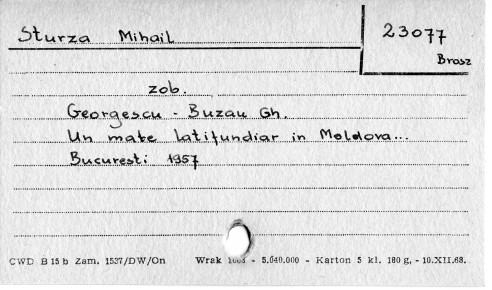 Sturza Mihail
23077
Brosz
zob.
Georgescu - Buzau Gh.
Un mate latifundiar in Moldova...
Bucuresti 1957
CWD B 15 b Zam. 1537/DW/On Wrak - 5.040.000 - Karton 5 kl. 180 g, - 10.XII.68.